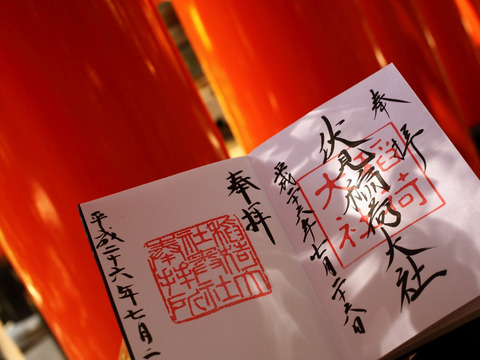 奉拝
伏見稲荷大社
稲荷
大社
平成二十六年七月二十六日
奉拝
稲荷大
社奥社
奉拝所
平成二十六年七月二